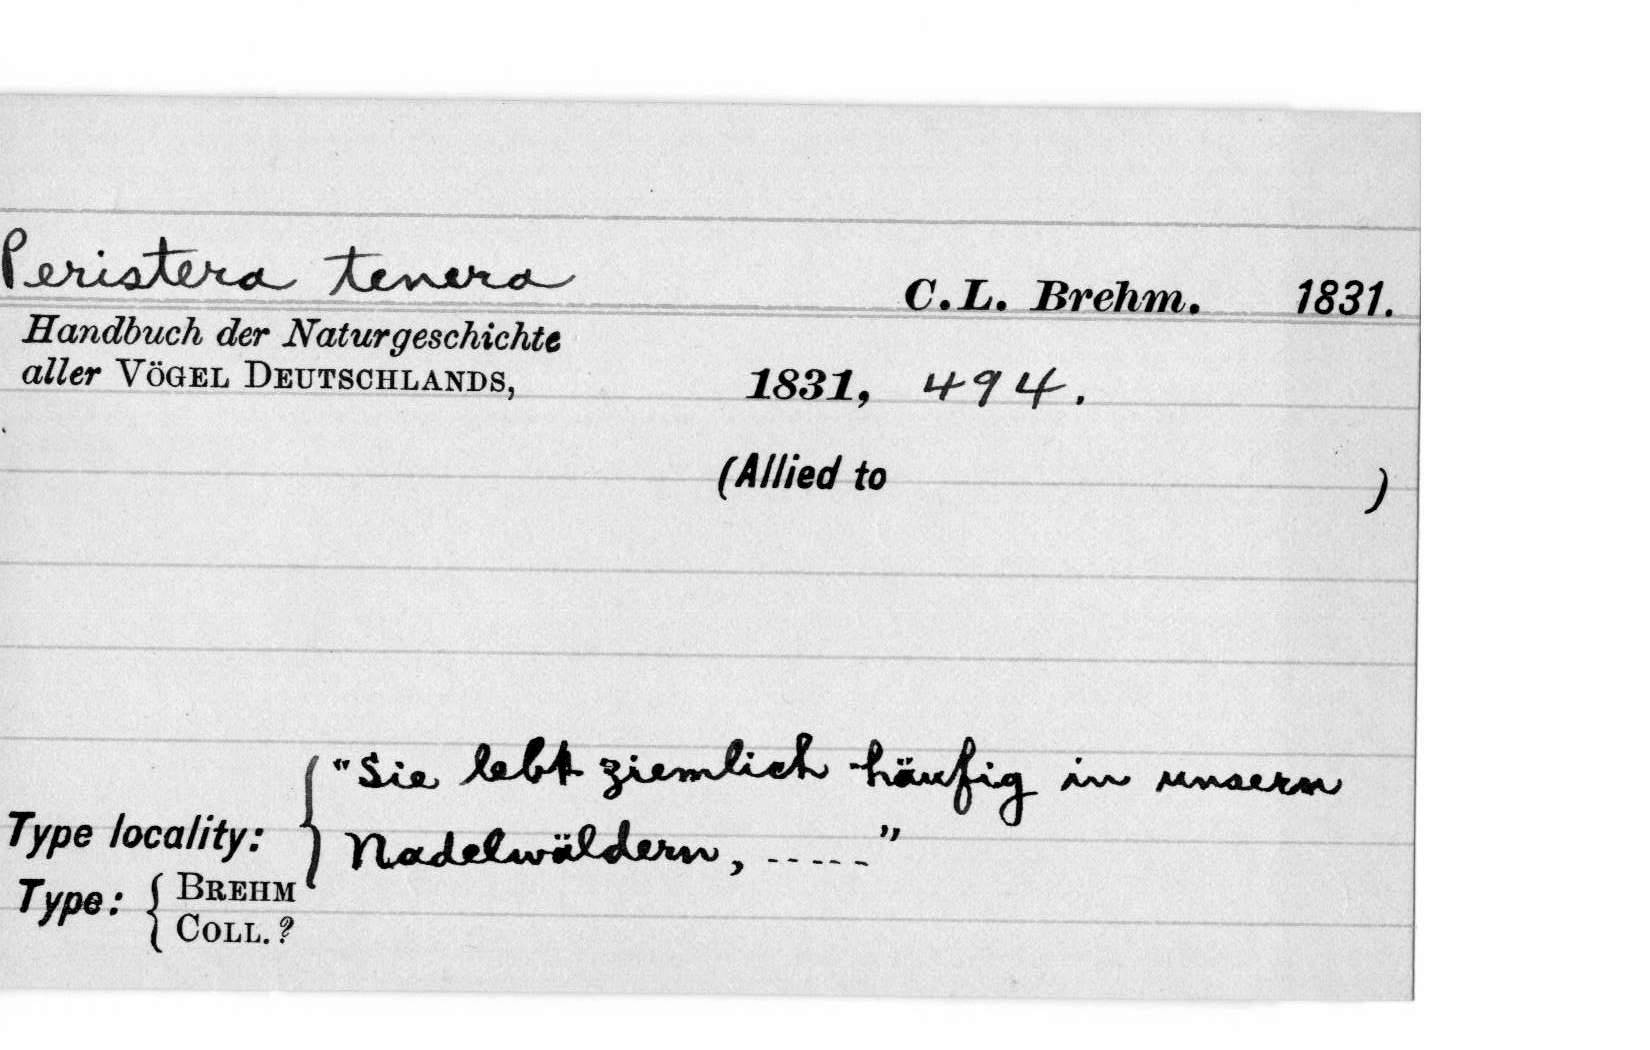 Peristera tenera C.L. Brehm. 1831.
Handbuch der Naturgeschichte
aller VÖGEL DEUTSCHLANDS, 1831, 494.
(Allied to )
"Sie lebt ziemlich häufig in unsern
Type locality: Nadelwäldern, -----"
Type: BREHM
COLL.?